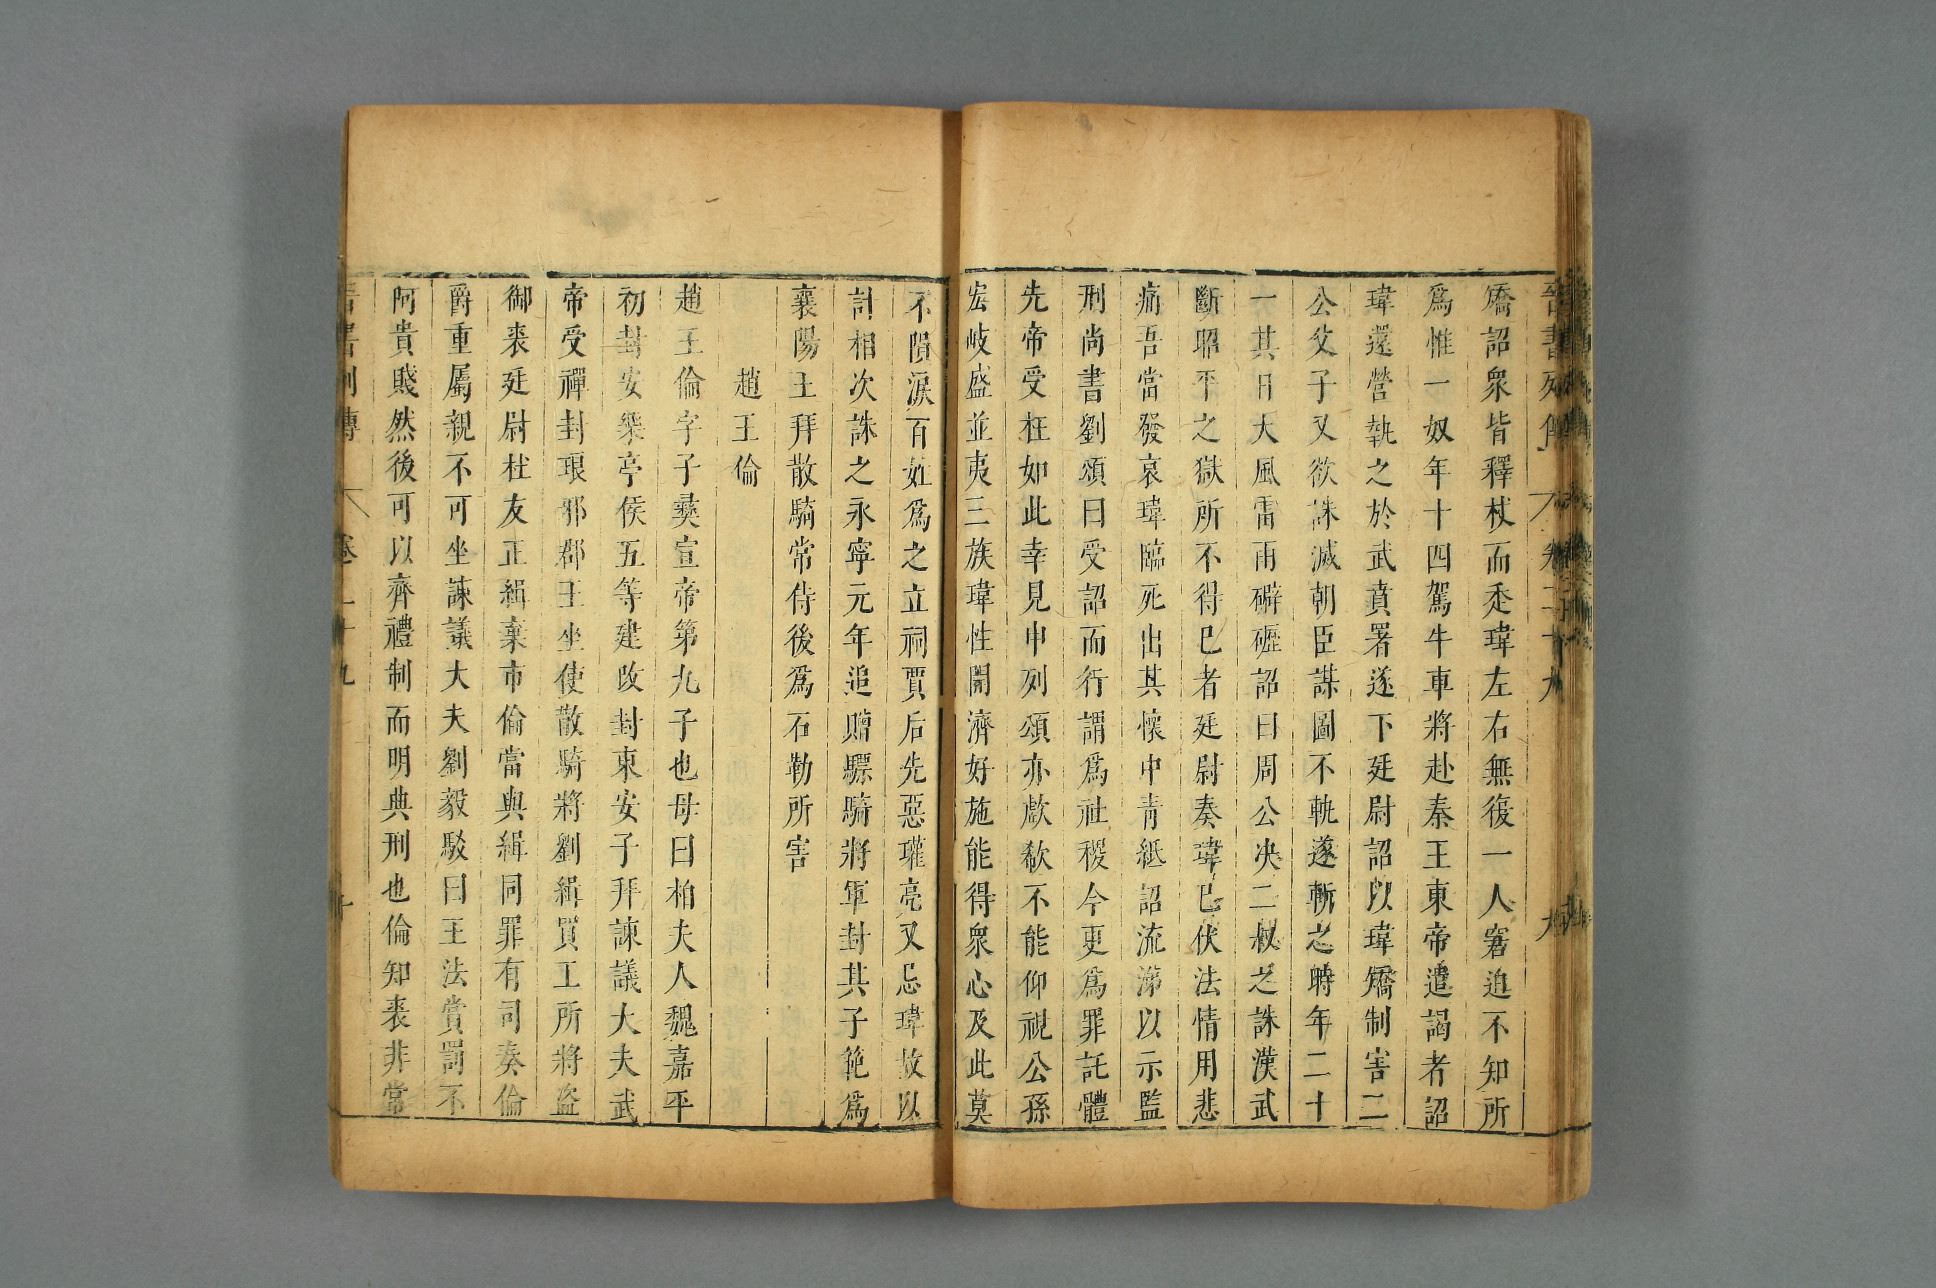 晉書列傳 卷二十九 九
矯詔衆皆釋杖而走瑋左右無復一人窘迫不知所
爲惟一奴年十四駕牛車將赴秦王東帝遣謁者詔
瑋還營執之於武賁署遂下廷尉詔以瑋矯制害二
公父子又欲誅滅朝臣謀圖不軌遂斬之時年二十
一其日大風雷雨礔礰詔曰周公决二叔之誅漢武
斷昭平之獄所不得已者廷尉奏瑋已伏法情用悲
痛吾當發哀瑋臨死出其懷中靑紙詔流涕以示監
刑尚書劉頌曰受詔而行謂爲社稷今更爲罪託體
先帝受枉如此幸見申列頌亦歔欷不能仰視公孫
宏岐盛並夷三族瑋性開濟好施能得衆心及此莫
不隕淚百姓爲之立祠賈后先惡瓘亮又忌瑋故以
計相次誅之永寧元年追贈驃騎將軍封其子範爲
襄陽王拜散騎常侍後爲石勒所害
趙王倫
趙王倫字子彝宣帝第九子也母曰柏夫人魏嘉平
初封安樂亭侯五等建改封東安子拜諫議大夫武
帝受禪封琅邪郡王坐使散騎將劉緝買工所將盜
御裘廷尉杜友正緝棄市倫當與緝同罪有司奏倫
爵重屬親不可坐諫議大夫劉毅駁曰王法賞罰不
阿貴賤然後可以齊禮制而明典刑也倫知裘非常
晉書列傳 卷二十九 十